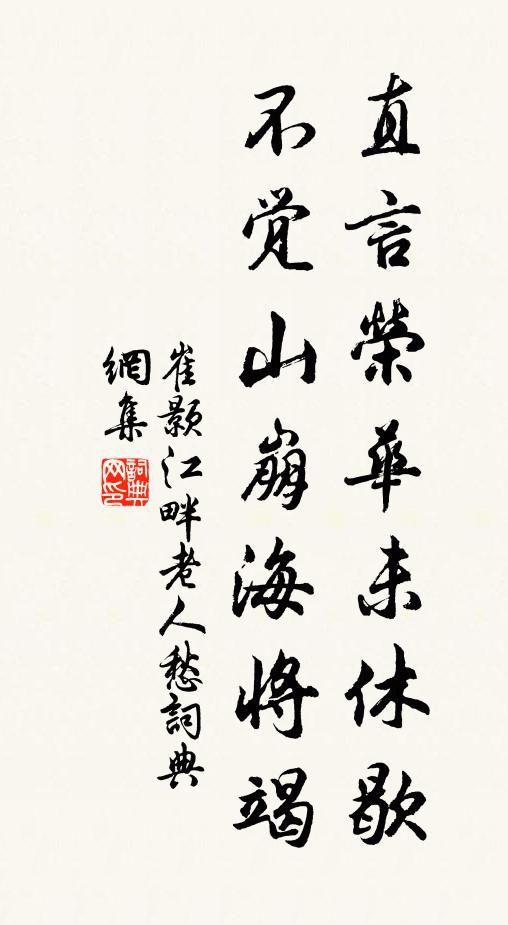 直言榮華未休歇
不觉山崩海將竭
崔颢江畔老人愁詞典
網集
詞典网印